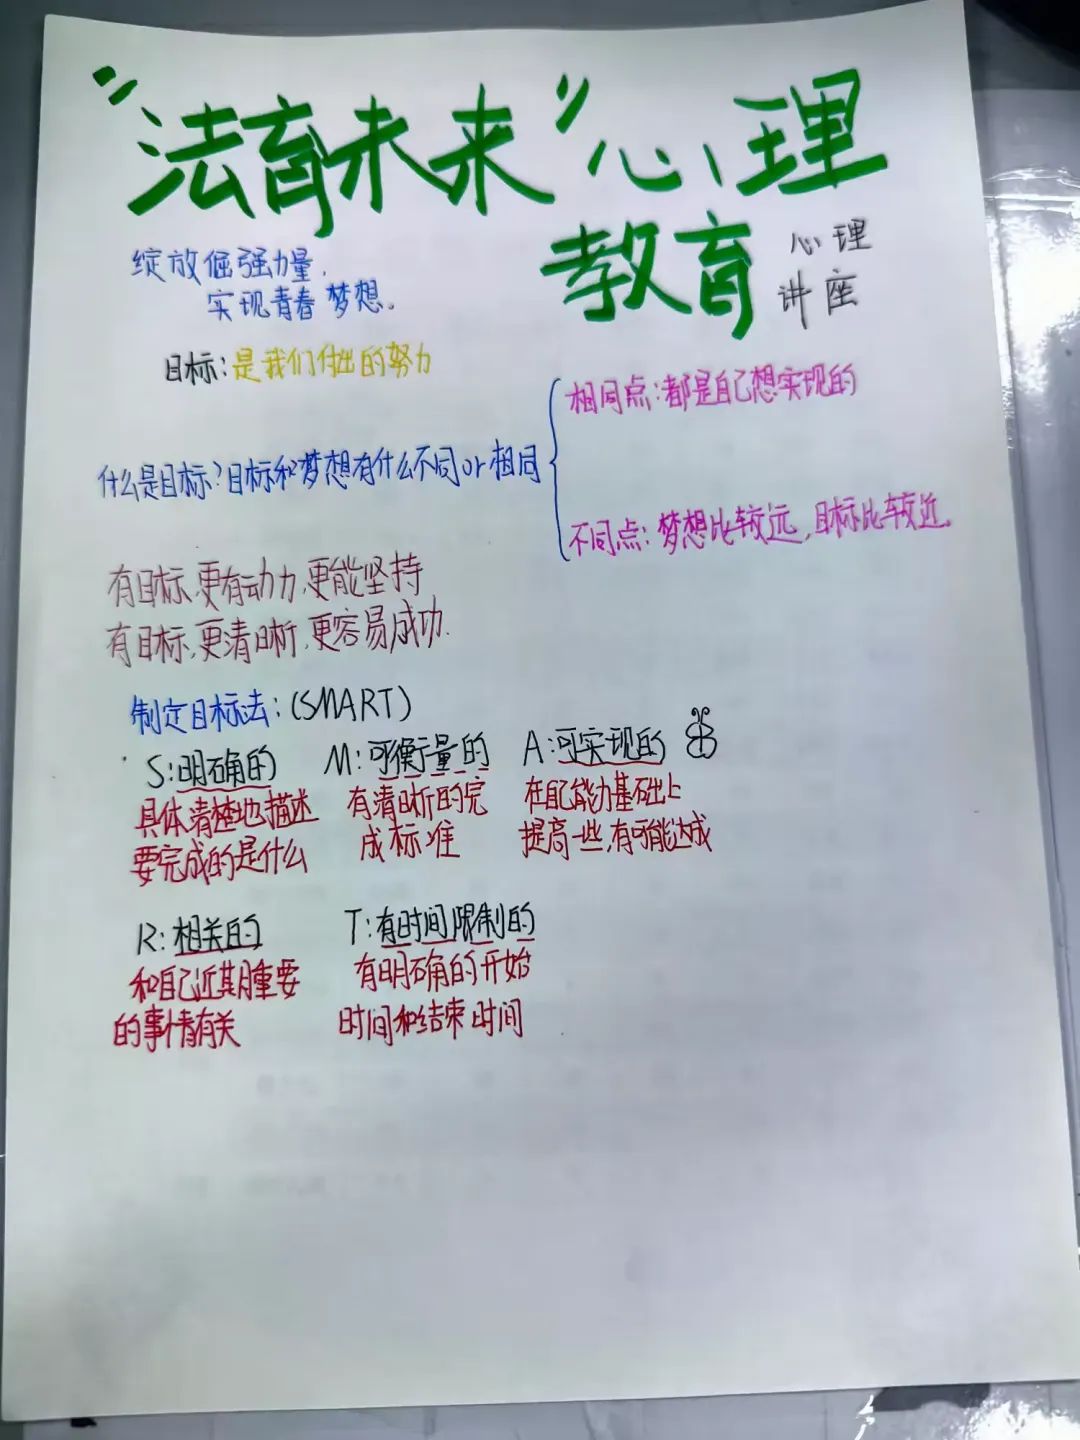 “法育未来”心理
教育
心理
讲座
绽放倔强力量,
实现青春梦想.
目标:是我们付出的努力
什么是目标?目标和梦想有什么不同or相同
相同点:都是自己想实现的
不同点:梦想比较远,目标比较近.
有目标,更有动力,更能坚持
有目标,更清晰,更容易成功.
制定目标法:(SMART)
S:明确的
具体清楚地描述
要完成的是什么
M:可衡量的
有清晰的完
成标准
A:可实现的
在自己能力基础上
提高一些,有可能达成
R:相关的
和自己近期重要
的事情有关
T:有时间限制的
有明确的开始
时间和结束时间